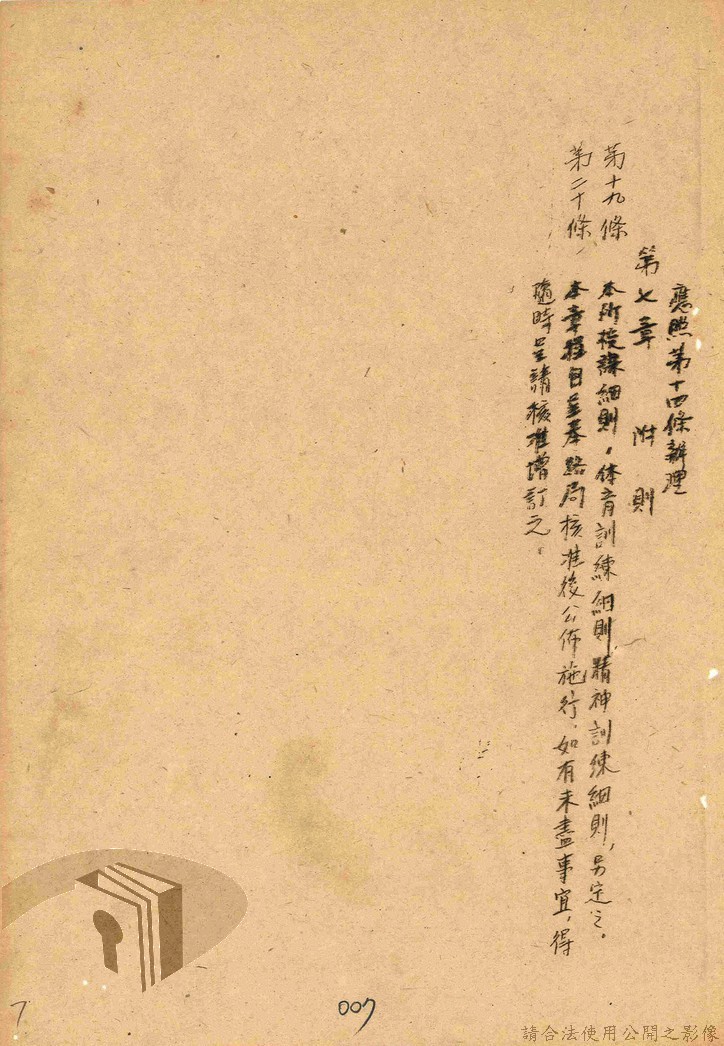 應照第十四條辦理
第七章 附則
第十九條 本所授課細則,体育訓練細則,精神訓練細則,另定之。
第二十條 本章程自呈奉路局核准後公佈施行,如有未盡事宜,得
隨時呈請核准增訂之。
007
7
請合法使用公開之影像